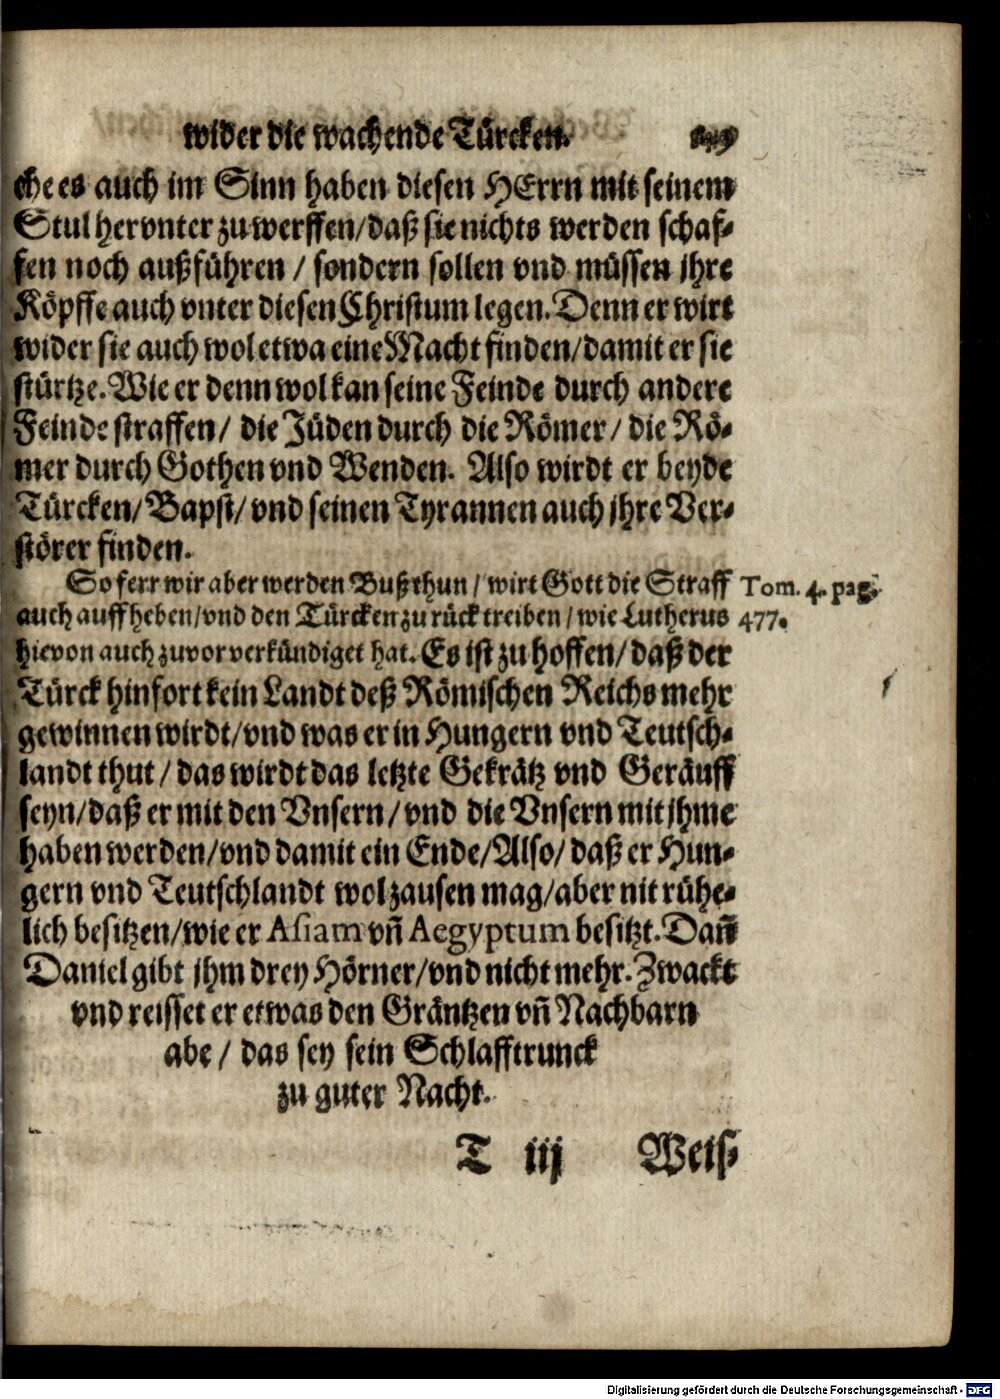 wider die wachende Türcken.
che es auch im Sinn haben diesen HErrn mit seinem
Stul hervnter zu werffen/daß sie nichts werden schaf-
fen noch außführen / sondern sollen vnd müssen jhre
Köpffe auch vnter diesen Christum legen. Denn er wirt
wider sie auch wol etwa eine Macht finden/damit er sie
stürtze. Wie er denn wol kan seine Feinde durch andere
Feinde straffen/ die Jüden durch die Römer/ die Rö-
mer durch Gothen vnd Wenden. Also wirdt er beyde
Türcken/Bapst/vnd seinen Tyrannen auch jhre Ver-
störer finden.
So ferr wir aber werden Buß thun/ wirt Gott die Straff Tom. 4. pag.
auch auffheben/vnd den Türcken zu rück treiben/wie Lutherus 477.
hievon auch zuvor verkündiget hat. Es ist zu hoffen/daß der
Türck hinfort kein Landt deß Römischen Reichs mehr
gewinnen wirdt/vnd was er in Hungern vnd Teutsch-
landt thut/das wirdt das letzte Gekrätz vnd Geräuff
seyn/daß er mit den Vnsern/vnd die Vnsern mit jhme
haben werden/vnd damit ein Ende/Also/daß er Hun-
gern vnd Teutschlandt wol zausen mag/aber nit rühe-
lich besitzen/wie er Asiam vñ Aegyptum besitzt. Dañ
Daniel gibt jhm drey Hörner/vnd nicht mehr. Zwackt
vnd reisset er etwas den Gräntzen vñ Nachbarn
abe / das sey sein Schlafftrunck
zu guter Nacht.
T iij Weis-
Digitalisierung gefördert durch die Deutsche Forschungsgemeinschaft - DFG